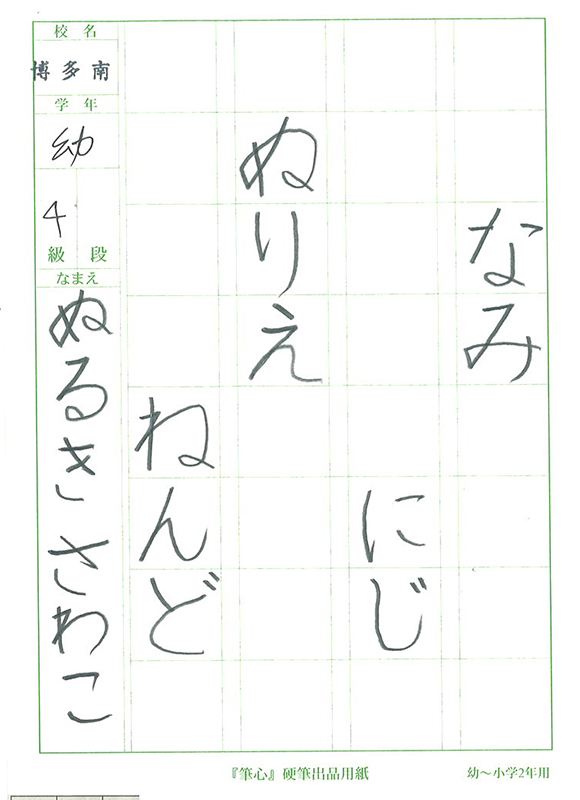 なみ
にじ
ぬりえ
ねんど
校名
博多南
学年
幼
4
級 段
なまえ
ぬるき さわこ
『筆心』硬筆出品用紙
幼～小学2年用